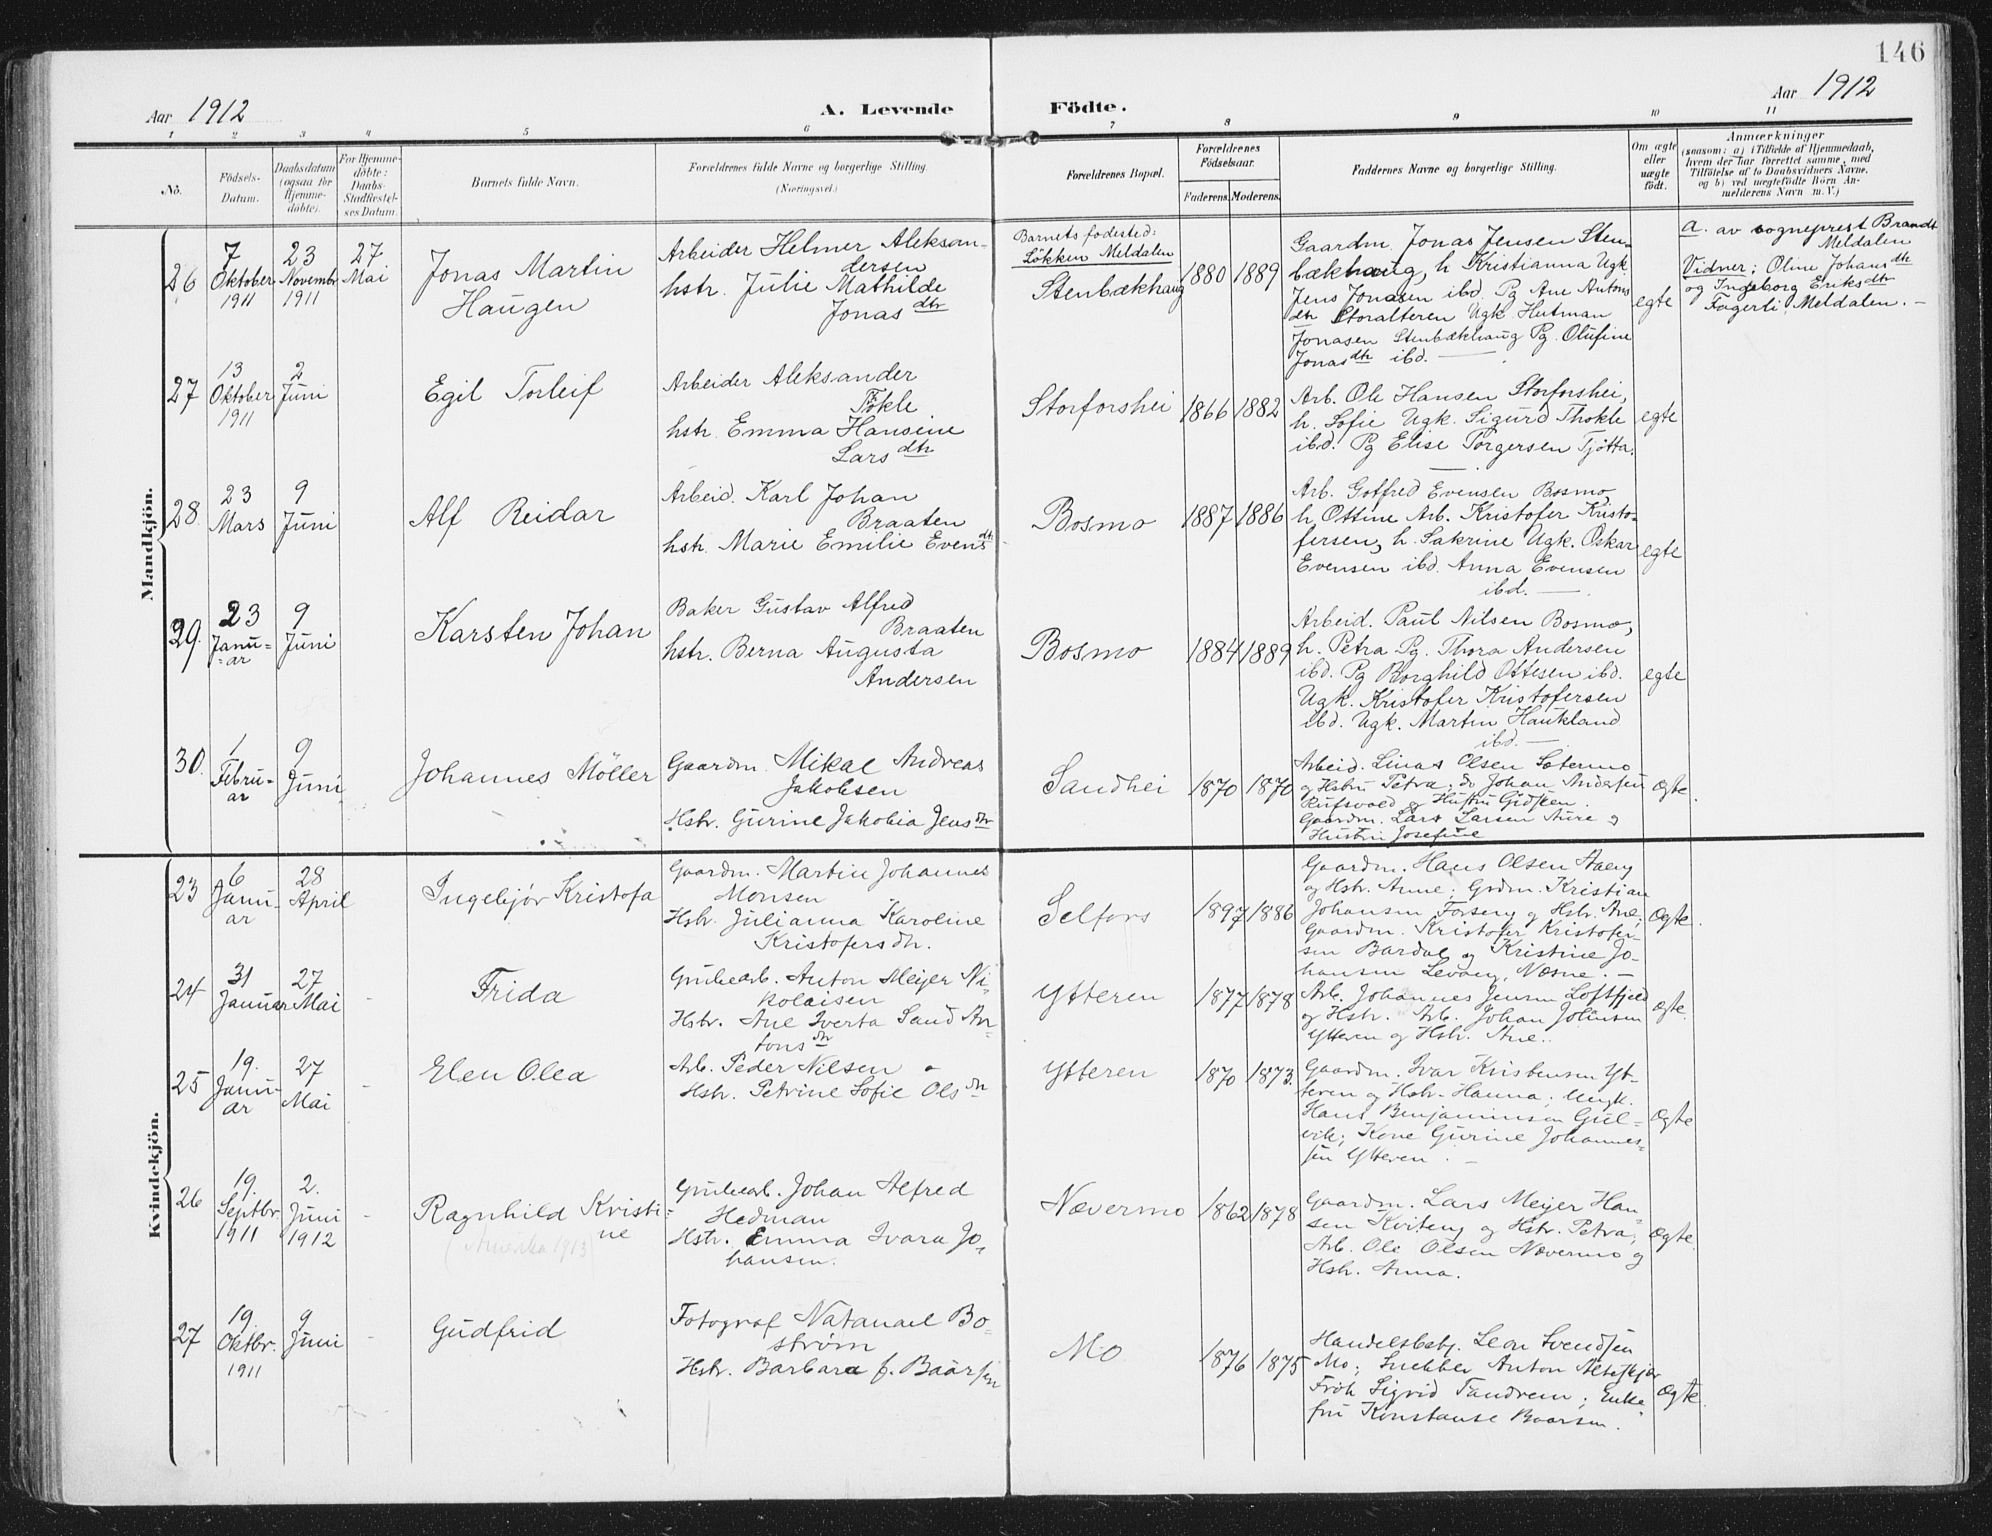 146
Aar 1912
A. Levende
Födte.
Aar 1912
1 2 3 4 5 6 7 8 9 10 11
No.
Födsels-
Datum.
Daabsdatum
(ogsaa for
Hjemme-
döbte).
For Hjemme-
döbte:
Daabs-
Stadfæstel-
ses Datum.
Barnets fulde Navn.
Forældrenes fulde Navne og borgerlige Stilling.
(Næringsvei.)
Forældrenes Bopæl.
Forældrenes
Födselsaar.
Faderens. Moderens.
Faddernes Navne og borgerlige Stilling.
Om ægte
eller
uægte
födt.
Anmærkninger
(saasom: a) i Tilfælde af Hjemmedaab,
hvem der har forrettet samme, med
Tilföielse af to Daabsvidners Navne,
og b) ved uægtefödte Börn An-
melderens Navn m. V.)
Mandkjön.
26
7
Oktober
1911
23
Novembr
1911
27
Mai
Jonas Martin
Haugen
Arbeider Helmer Aleksan-
dersen
hstr. Julie Mathilde
Jonas dtr
Barnets fødested:
Løkken Meldalen
Stenbækhaug
1880 1889
Gaardm. Jonas Jensen Sten-
bækhaug, h. Kristianna Ugk.
Jens Jonasen ibd. Pg Ane Antons
dtr Storalteren Ugk. Hutman
Jonasen Stenbækhaug Pg. Olufine
Jonas dtr ibd.
egte
a. av sogneprest Brandt
Meldalen
Vidner: Oline Johans dtr
og Ingeborg Eriks dtr
Fagerli Meldalen. -
27
13
Oktober
1911
2
Juni
Egil Torleif
Arbeider Aleksander
Tökle
hstr. Emma Hansine
Lars dtr
Storforshei
1866 1882
Arb. Ole Hansen Storforshei,
h. Sofie Ugk. Sigurd Thokle
ibd. Pg Elise Torgersen Tjøtta.
egte
28
23
Mars
9
Juni
Alf Reidar
Arbeid. Karl Johan
Braaten
hstr. Marie Emilie Evens dtr
Bosmo
1887 1886
Arb. Gotfred Evensen Bosmo,
h. Ottine Arb. Kristofer Kristo-
fersen, h. Sakrine Ugk. Oskar
Evensen ibd. Anna Evensen
ibd.
egte
29.
23
Janu-
ar
9
Juni
Karsten Johan
Baker Gustav Alfred
Braaten
hstr. Berna Augusta
Andersen
Bosmo
1884 1889
Arbeid. Paul Nilsen Bosmo,
h. Petra Pg. Thora Andersen
ibd. Pg Borghild Ottesen ibd.
Ugk. Kristofer Kristofersen
ibd. Ugk. Martin Haukland
ibd.
egte
30.
1
Febru-
ar
9
Juni
Johannes Möller
Gaardm. Mikal Andreas
Jakobsen
Hstr. Gurine Jakobia Jens dtr
Sandhei
1870 1870
Arbeid. Linas Olsen Sætermo
og Hstru Petra; do Johan Andersen
og Hustru
Gaardm. Lars Larsen Aure og
Hustru Josefine
Ægte.
Kvindekjön.
23
6
Janu-
ar
28
April
Ingebjør Kristofa
Gaardm. Martin Johannes
Monsen
Hstr. Julianna Karoline
Kristofersdtr.
Selfors
1897 1886
Gaardm. Hans Olsen Aaeng
og Hstr. Anne; Grdm. Kristian
Johansen Forseng og Hstr. Ane;
Gaardm. Kristofer Kristofer-
sen Bardal og Kristine Jo-
hansen Levaeng, Næsne. -
Ægte.
24
31
Januar
27
Mai
-
Frida
Grubearb. Anton Meyer Ni-
kolaisen
Hstr. Ane Iverta Sand An-
tons dtr
Ytteren
1877 1878
Arb. Johannes Jensen Loftfjeld
og Hstr. Arb. Johan Johansen
Ytteren og Hstr. Ane.
Ægte.
25
19.
Janu-
ar
27
Mai
-
Elen Olea
Arb. Peder Nilsen
Hstr. Petrine Sofie Ols dtr
Ytteren
1870 1873.
Gaardm. Ivar Kristensen Yt-
teren og Hstr. Hanna; Ungk.
Hans Benjaminsen Gul-
vik; Kone Gurine Johannes-
sen Ytteren.
Ægte
26
19.
Septbr.
1911
2.
Juni
1912
-
Ragnhild Kristi-
ne
(Amerika 1913)
Grubearb. Johan Alfred
Hedman
Hstr. Emma Ivara Jo-
hansen.
Nævermo
1862 1878
Gaardm. Lars Meyer Han-
sen Kviteng og Hstr. Petra,
Arb. Ole Olsen Nævermo og
Hstr. Anna.
Ægte.
27
19.
Oktbr.
1911
9
Juni
-
Gudfrid
Fotograf Natanael Bo-
strøm
Hstr. Barbara f. Baarsen
Mo
1876 1875
Handelsbstj. Leon Svendsen
Mo; Snekker Anton Alteskjær
Frøk Sigrid Tandrem; Enke-
fru Konstanse Baarsen.
Ægte.